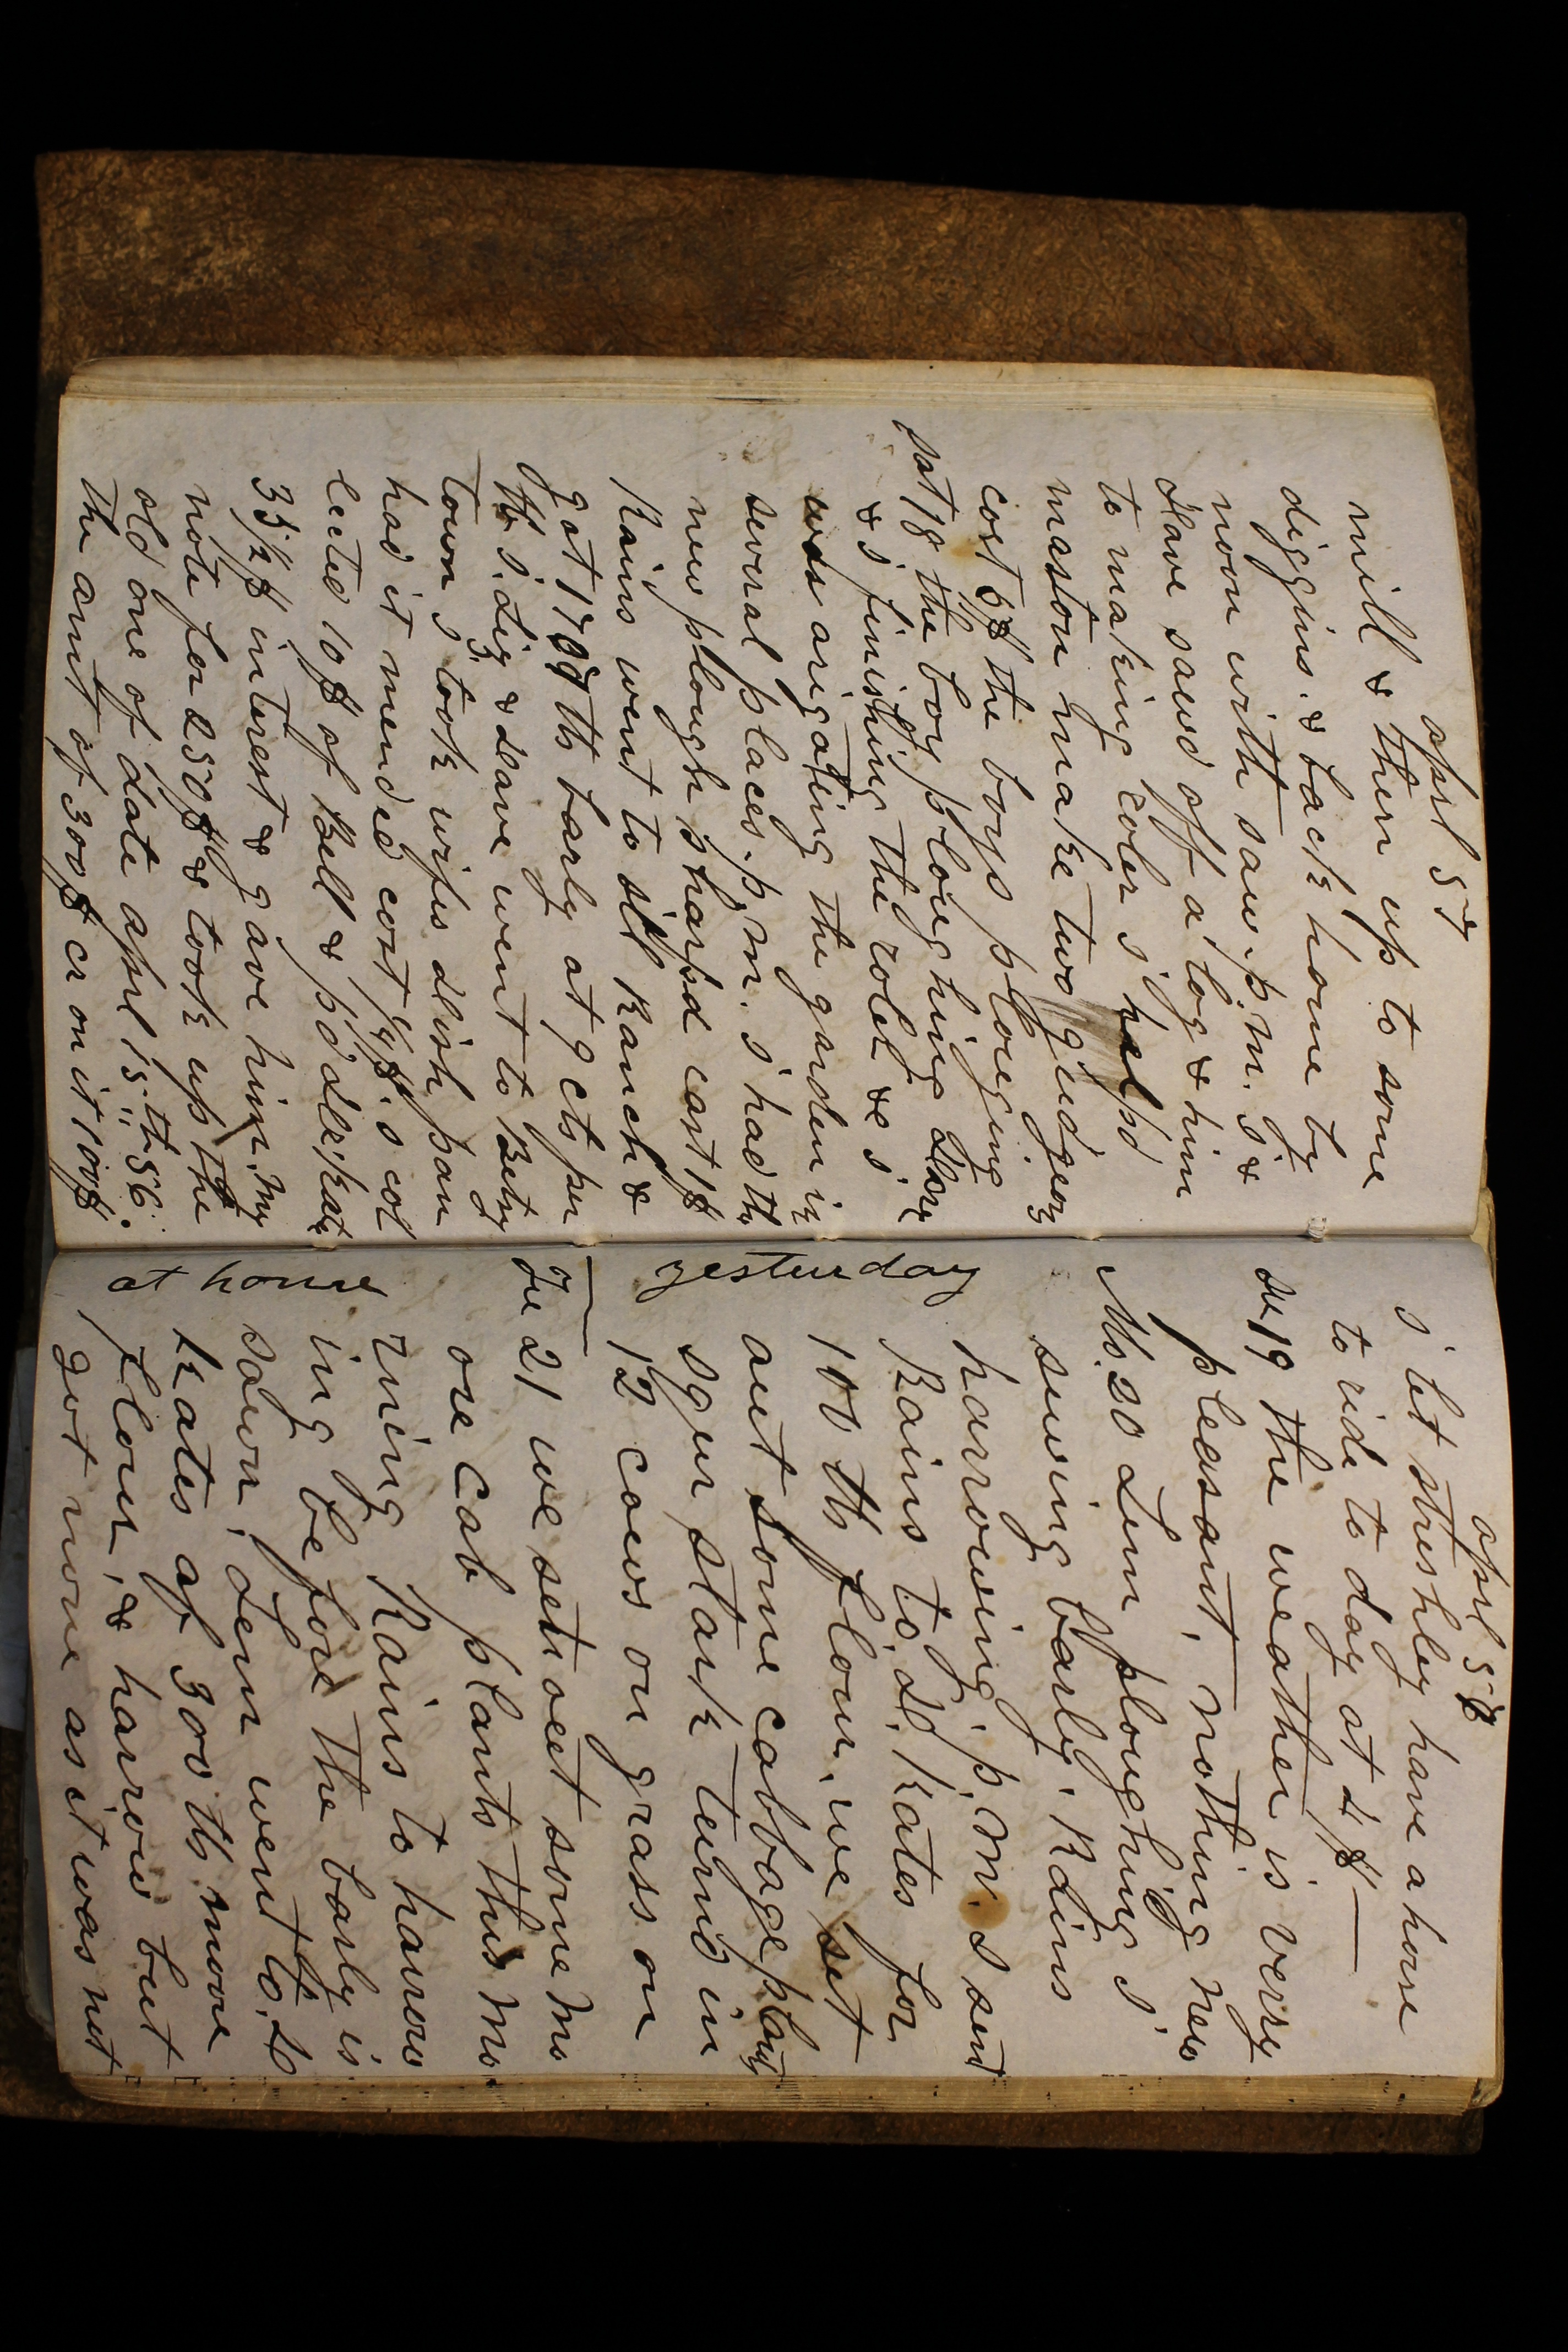 aprl 57
mill & then up to some
diggins. & back home by
noon with saw. p.m. I &
Dave sawd off a log & him
to making roler I' helpd
maston make two gudgeons
cost 5$ the boys ploweging
Sat 18 the boy ploughing Dave
& I finishing the roler & I
was arigating the garden in
several places. p.m. I had the
new plough sharpd cost 1$
Rains went to still Ranch &
got 1700 lb barly at 9 cts per
lb I. Liz & Dave went to Betsy
town I took wifes dish pan
had it mended cost 1/4$. I col
lected 10$ of Bell & pd
33 1/2$ interest & gave him my
note for 250$ & took up the
old one of date aprl 15th 56
the amt of 300$ cr on it 100$
aprl 57
I let Strishley have a horse
to ride to day at 4$ —
Su 19 the weather is verry
pleasant, nothing new
Mo. 20 Lem ploughing I
sewing barly. Rains
harrowing. p.m. I sent
Rains to D. Kates for
100 lb flour. we set
yesturday
out some cabbage plants
sgur stark turnd in
12 cows on grass on
Tu 21 we set out some mo
ore cab plants this mo
rning Rains to harrow
ing before the barly is
sown, Lem went to D
Kates af 300 lb more
at home
flour, & harrow but
got none as it was not